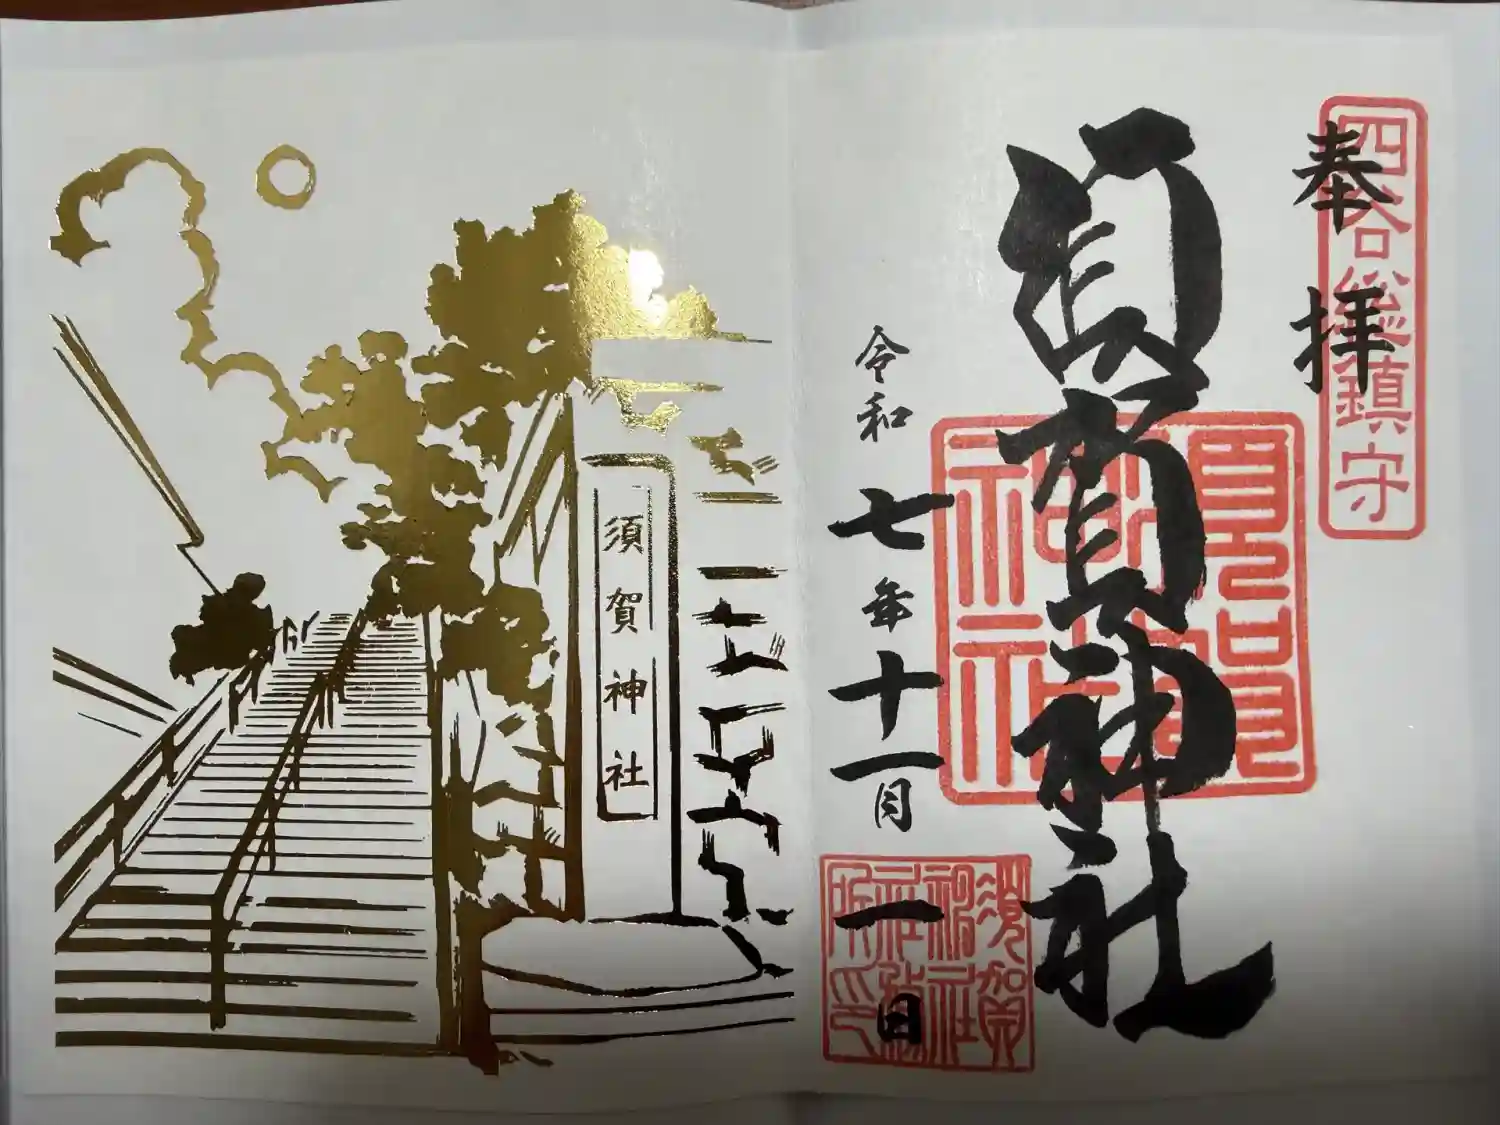 四谷総鎮守
奉拝
須賀神社
須賀神社
令和七年十一月一日
須賀神社